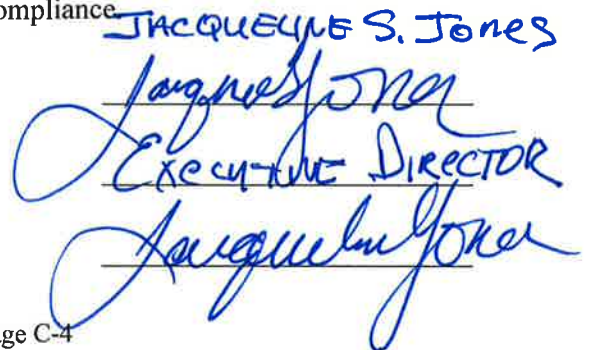 ompliance
JACQUELINE S. Jones
Jacquel Jones
EXECUTIVE DIRECTOR
Jacquelin Jones
ge C-4